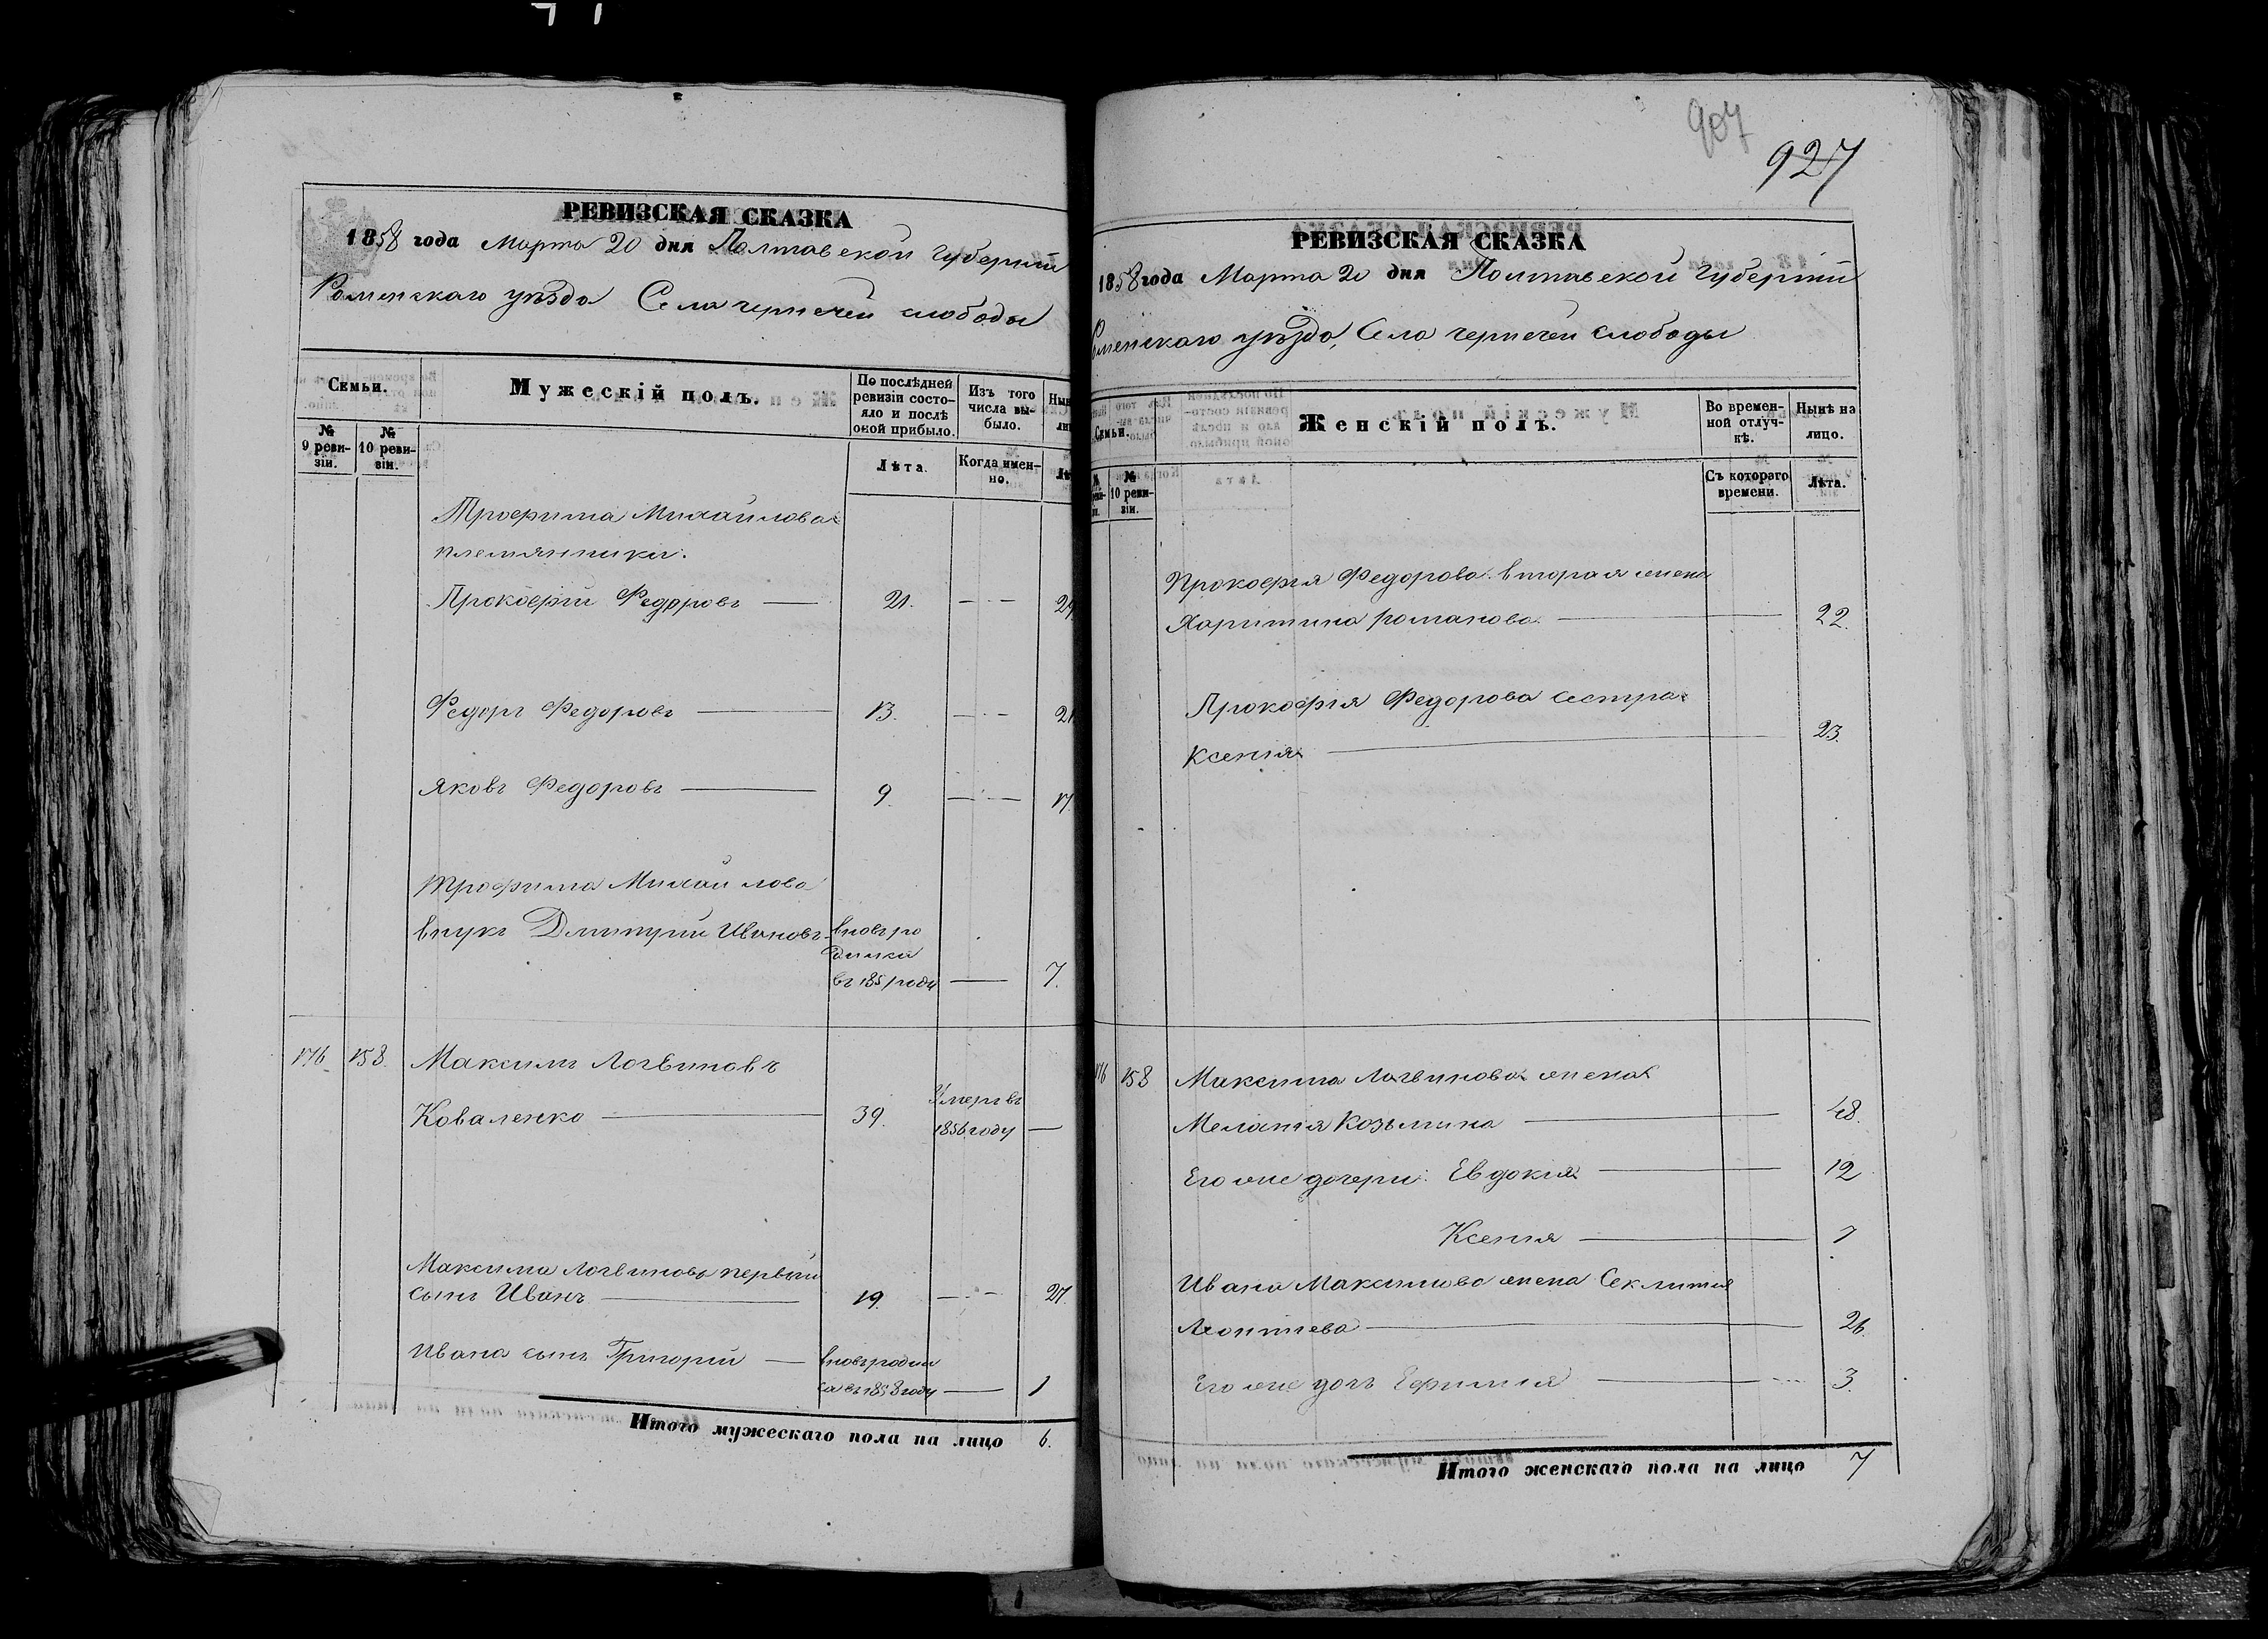 РЕВИЗСКАЯ СКАЗКА
1858 года Марта 20 дня Полтавской Губерніи
Роменскаго уѣзда Села чернечей слободы
Семьи.
№ 9 ревизіи.
№ 10 ревизіи.
Мужескій полъ.
По послѣдней ревизіи состояло и послѣ оной прибыло.
Изъ того числа выбыло.
Лѣта.
Когда именно.
Трофима Михайлова
племянники.
Прокофій Федоровъ — 21. — 29
Федоръ Федоровъ — 13. — 21
Яковъ Федоровъ — 9. — 17.
Трофима Михайлова
внукъ Дмитрій Ивановъ вновь родился въ 1851 году — 7.
176 158 Максимъ Логвиновъ
Коваленко — 39. Умеръ въ 1856 году —
Максима Логвинова первый
сынъ Иванъ — 19. — 27.
Ивана сынъ Григорій — вновь родился въ 1858 году — 1
Итого мужескаго пола на лицо 6.
907
927
РЕВИЗСКАЯ СКАЗКА
1858 года Марта 20 дня Полтавской Губерніи
Роменскаго уѣзда, Села чернечей слободы
Семьи.
№ 10 ревизіи.
Женскій полъ.
Во временной отлучкѣ.
Нынѣ на лицо.
Съ котораго времени.
Лѣта.
Прокофія Федорова вторая жена
Харитина романова — 22.
Прокофія Федорова сестра
Ксенія — 23.
176 158 Максима Логвинова жена
Меланія Козьмина — 48.
Его же дочери: Евдокия — 12
Ксенія — 7
Ивана Максимова жена Секлитія
Леонтіева — 26.
Его же дочь Ефимия — 3.
Итого женскаго пола на лицо 7